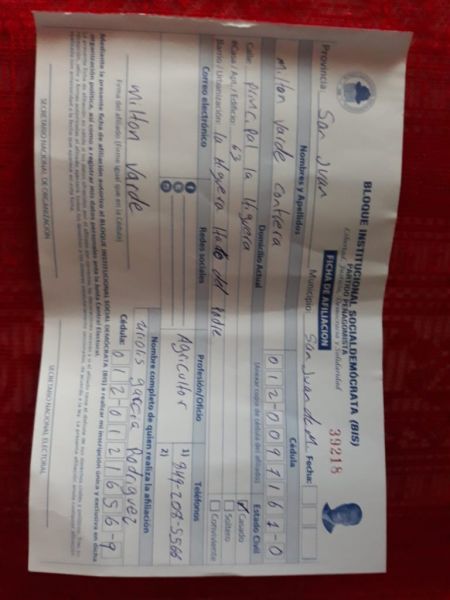 BLOQUE INSTITUCIONAL SOCIALDEMÓCRATA (BIS)
PARTIDO PEÑAGOMISTA
Libertad, Justicia, Democracia y Solidaridad
FICHA DE AFILIACIÓN
39218
Provincia: San Juan Municipio: San Juan de M. Fecha:
Nombres y Apellidos Cédula
milton Varde Contrera 0 1 2 - 0 0 9 7 1 6 1 - 0
(Anexar copia de cédula del afiliado)
Domicilio Actual Estado Civil
Calle: principal la Higuera Casado
#Casa / Apt. / Edificio: 63 Soltero
Barrio / Urbanización: la Higuera Hato del Padre Conviviente
Correo electrónico Redes sociales Profesión/Oficio Teléfonos
Agricultor 1) 849-207-5566
2)
Nombre completo de quien realiza la afiliación
milton Varde García Rodriguez
Firma del afiliado (Firme igual que en la Cédula) Cédula: 0 1 2 - 0 1 2 1 6 5 6 - 9
Mediante la presente ficha de afiliación autorizo al BLOQUE INSTITUCIONAL SOCIAL DEMÓCRATA (BIS) a realizar mi inscripción única y exclusiva en dicha
organización política, así como a registrar mis datos personales ante la Junta Central Electoral.
SECRETARIO NACIONAL DE ORGANIZACIÓN SECRETARIO NACIONAL ELECTORAL